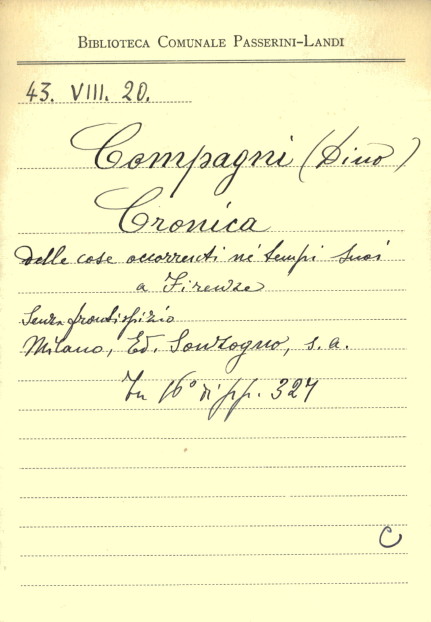 BIBLIOTECA COMUNALE PASSERINI-LANDI
43. VIII. 20.
Compagni (Dino)
Cronica
delle cose occorrenti ne' tempi suoi
a Firenze
Senza frontispizio
Milano, Ed. Sonzogno, s. a.
In 16° di pp. 327
C